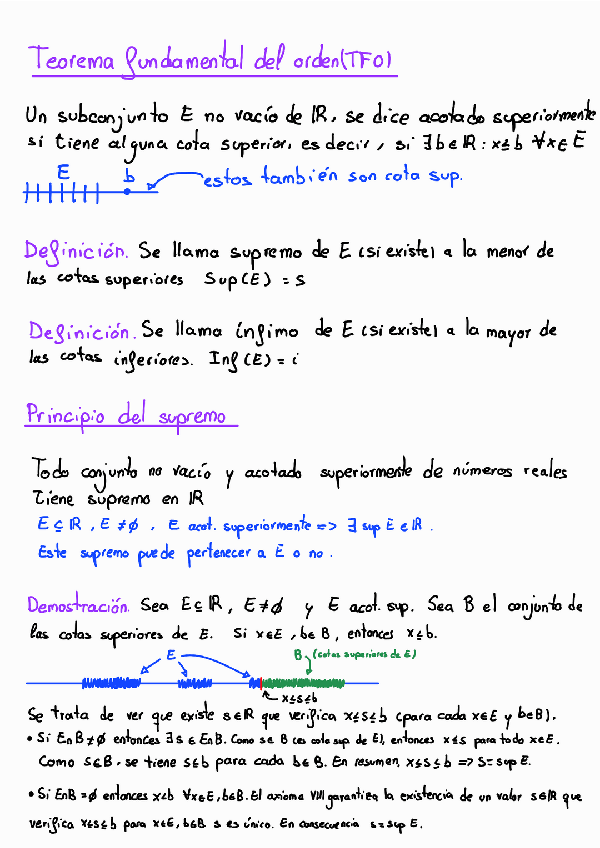 Teorema fundamental del orden(TFO)
Un subconjunto E no vacío de ℝ, se dice acotado superiormente
si tiene alguna cota superior, es decir, si ∃b∈ℝ: x≤b ∀x∈E
E b estos también son cota sup.
Definición. Se llama supremo de E (si existe) a la menor de
las cotas superiores Sup(E) = s
Definición. Se llama ínfimo de E (si existe) a la mayor de
las cotas inferiores. Inf(E) = i
Principio del supremo
Todo conjunto no vacío y acotado superiormente de números reales
tiene supremo en ℝ
E⊆ℝ, E≠∅, E acot. superiormente => ∃ sup E∈ℝ.
Este supremo puede pertenecer a E o no.
Demostración. Sea E⊆ℝ, E≠∅ y E acot. sup. Sea B el conjunto de
las cotas superiores de E. Si x∈E, b∈B, entonces x≤b.
E B (cotas superiores de E)
x≤s≤b
Se trata de ver que existe s∈ℝ que verifica x≤s≤b (para cada x∈E y b∈B).
• Si E∩B≠∅ entonces ∃s∈E∩B. Como s∈B (es cota sup de E), entonces x≤s para todo x∈E.
Como s∈B, se tiene s≤b para cada b∈B. En resumen, x≤s≤b => s=sup E.
• Si E∩B=∅ entonces x<b ∀x∈E, b∈B. El axioma VIII garantiza la existencia de un valor s∈ℝ que
verifica x≤s≤b para x∈E, b∈B. s es único. En consecuencia s=sup E.